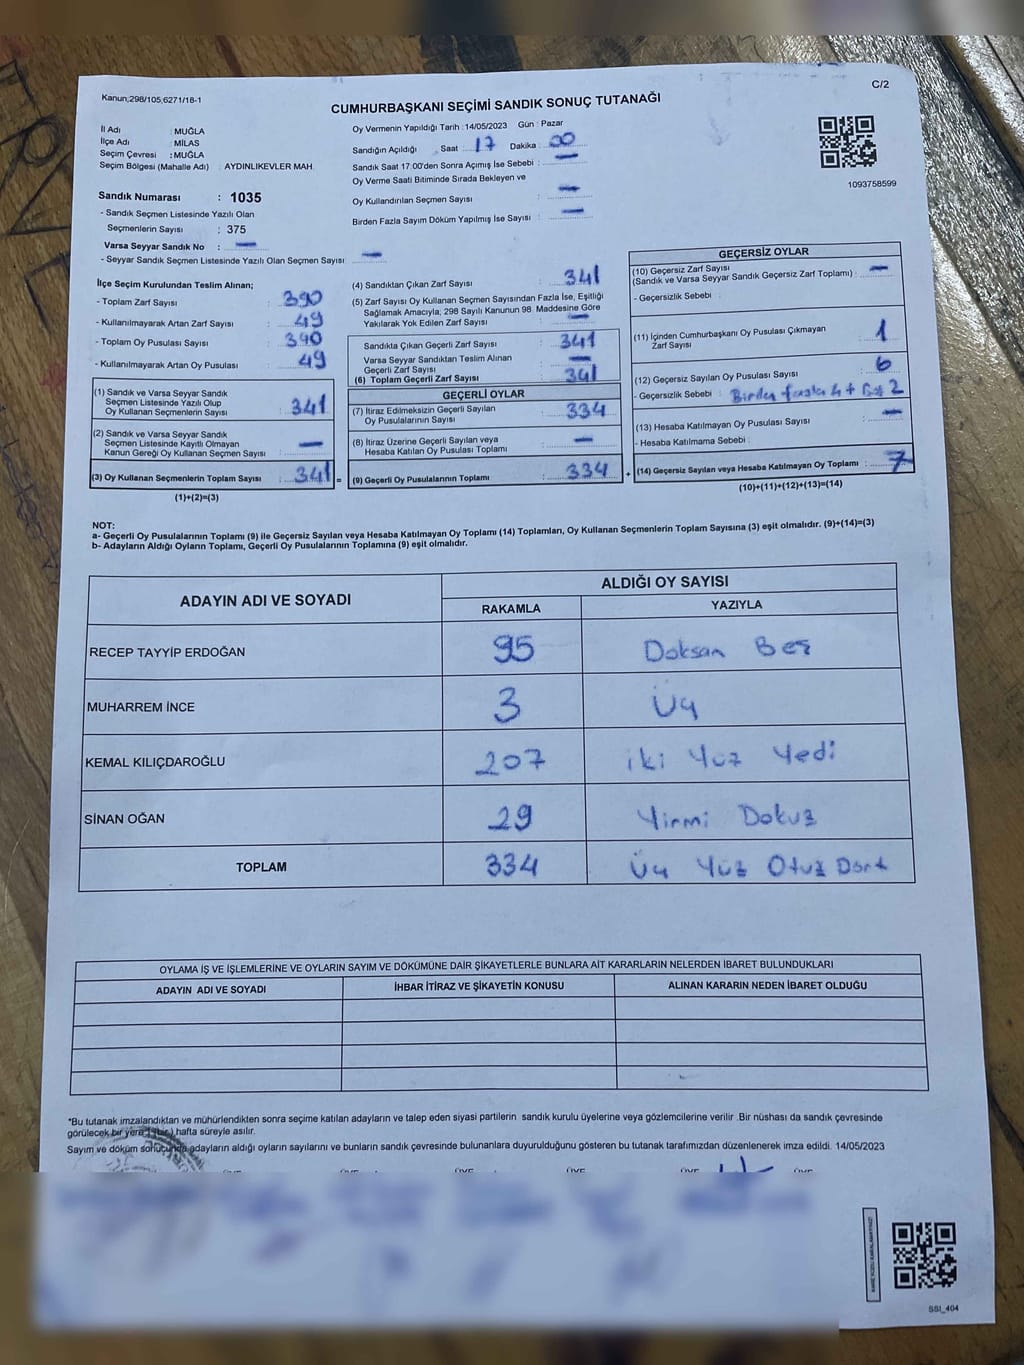 Kanun;298/105,6271/18-1
C/2
CUMHURBAŞKANI SEÇİMİ SANDIK SONUÇ TUTANAĞI
İl Adı : MUĞLA
İlçe Adı : MİLAS
Seçim Çevresi : MUĞLA
Seçim Bölgesi (Mahalle Adı) : AYDINLIKEVLER MAH.
Sandık Numarası : 1035
- Sandık Seçmen Listesinde Yazılı Olan
Seçmenlerin Sayısı : 375
Varsa Seyyar Sandık No : —
- Seyyar Sandık Seçmen Listesinde Yazılı Olan Seçmen Sayısı : —
Oy Vermenin Yapıldığı Tarih :14/05/2023 Gün : Pazar
Sandığın Açıldığı Saat : 17 Dakika : 00
Sandık Saat 17.00'den Sonra Açımış İse Sebebi : —
Oy Verme Saati Bitiminde Sırada Bekleyen ve
Oy Kullandırılan Seçmen Sayısı : —
Birden Fazla Sayım Döküm Yapılmış İse Sayısı : —
1093758599
İlçe Seçim Kurulundan Teslim Alınan;
- Toplam Zarf Sayısı : 390
- Kullanılmayarak Artan Zarf Sayısı : 49
- Toplam Oy Pusulası Sayısı : 390
- Kullanılmayarak Artan Oy Pusulası : 49
(1) Sandık ve Varsa Seyyar Sandık
Seçmen Listesinde Yazılı Olup
Oy Kullanan Seçmenlerin Sayısı : 341
(2) Sandık ve Varsa Seyyar Sandık
Seçmen Listesinde Kayıtlı Olmayan
Kanun Gereği Oy Kullanan Seçmen Sayısı : —
(3) Oy Kullanan Seçmenlerin Toplam Sayısı : 341 =
(1)+(2)=(3)
(4) Sandıktan Çıkan Zarf Sayısı : 341
(5) Zarf Sayısı Oy Kullanan Seçmen Sayısından Fazla İse, Eşitliği
Sağlamak Amacıyla; 298 Sayılı Kanunun 98. Maddesine Göre
Yakılarak Yok Edilen Zarf Sayısı : —
Sandıkta Çıkan Geçerli Zarf Sayısı : 341
Varsa Seyyar Sandıktan Teslim Alınan
Geçerli Zarf Sayısı : —
(6) Toplam Geçerli Zarf Sayısı : 341
GEÇERLİ OYLAR
(7) İtiraz Edilmeksizin Geçerli Sayılan
Oy Pusulalarının Sayısı : 334
(8) İtiraz Üzerine Geçerli Sayılan veya
Hesaba Katılan Oy Pusulası Toplamı : —
(9) Geçerli Oy Pusulalarının Toplamı : 334 +
GEÇERSİZ OYLAR
(10) Geçersiz Zarf Sayısı
(Sandık ve Varsa Seyyar Sandık Geçersiz Zarf Toplamı) : —
- Geçersizlik Sebebi :
(11) İçinden Cumhurbaşkanı Oy Pusulası Çıkmayan
Zarf Sayısı : 1
(12) Geçersiz Sayılan Oy Pusulası Sayısı : 6
- Geçersizlik Sebebi : Birden fazla 4 + Boş 2
(13) Hesaba Katılmayan Oy Pusulası Sayısı : —
- Hesaba Katılmama Sebebi :
(14) Geçersiz Sayılan veya Hesaba Katılmayan Oy Toplamı : 7
(10)+(11)+(12)+(13)=(14)
NOT:
a- Geçerli Oy Pusulalarının Toplamı (9) ile Geçersiz Sayılan veya Hesaba Katılmayan Oy Toplamı (14) Toplamları, Oy Kullanan Seçmenlerin Toplam Sayısına (3) eşit olmalıdır. (9)+(14)=(3)
b- Adayların Aldığı Oyların Toplamı, Geçerli Oy Pusulalarının Toplamına (9) eşit olmalıdır.
ADAYIN ADI VE SOYADI
ALDIĞI OY SAYISI
RAKAMLA YAZIYLA
RECEP TAYYİP ERDOĞAN 95 Doksan Beş
MUHARREM İNCE 3 Üç
KEMAL KILIÇDAROĞLU 207 iki Yüz Yedi
SİNAN OĞAN 29 Yirmi Dokuz
TOPLAM 334 Üç Yüz Otuz Dört
OYLAMA İŞ VE İŞLEMLERİNE VE OYLARIN SAYIM VE DÖKÜMÜNE DAİR ŞİKAYETLERLE BUNLARA AİT KARARLARIN NELERDEN İBARET BULUNDUKLARI
ADAYIN ADI VE SOYADI İHBAR İTİRAZ VE ŞİKAYETİN KONUSU ALINAN KARARIN NEDEN İBARET OLDUĞU
*Bu tutanak imzalandıktan ve mühürlendikten sonra seçime katılan adayların ve talep eden siyasi partilerin sandık kurulu üyelerine veya gözlemcilerine verilir .Bir nüshası da sandık çevresinde
görülecek bir yere 1(bir) hafta süreyle asılır.
Sayım ve döküm sonucunda adayların aldığı oyların sayılarını ve bunların sandık çevresinde bulunanlara duyurulduğunu gösteren bu tutanak tarafımızdan düzenlenerek imza edildi. 14/05/2023
ÜYE ÜYE ÜYE ÜYE ÜYE ÜYE
SSİ_404